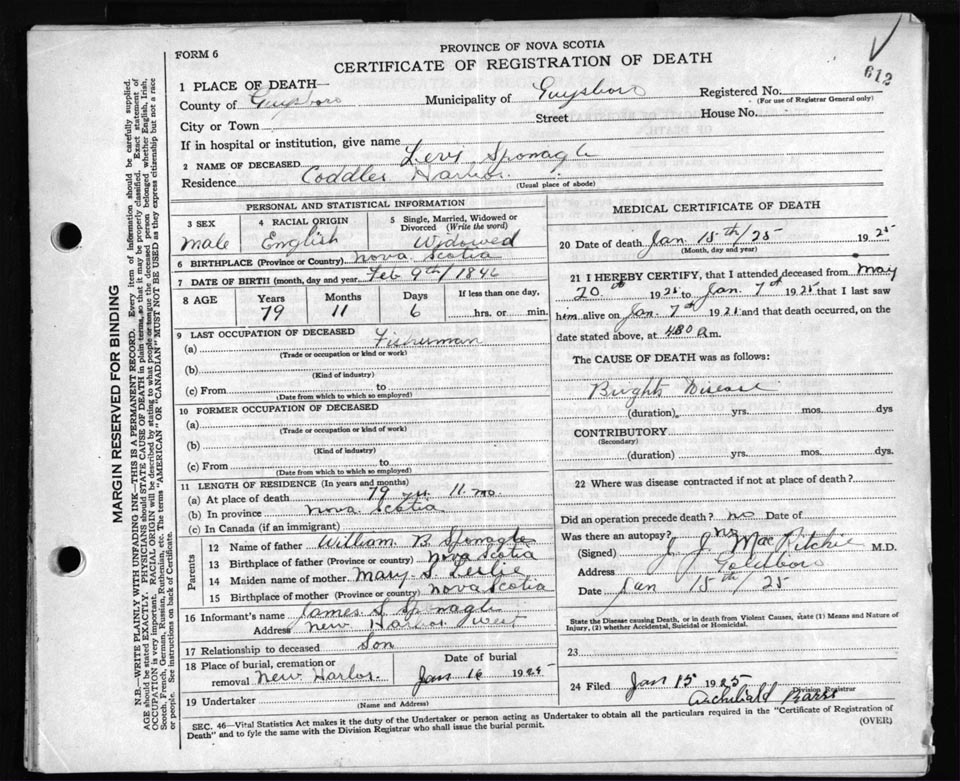 612
PROVINCE OF NOVA SCOTIA
FORM 6
CERTIFICATE OF REGISTRATION OF DEATH
1 PLACE OF DEATH—
County of Guysboro Municipality of Guysboro Registered No.
(For use of Registrar General only)
City or Town Street House No.
If in hospital or institution, give name
2 NAME OF DECEASED Levi Sponagle
Residence Coddles Harbor.
(Usual place of abode)
PERSONAL AND STATISTICAL INFORMATION
3 SEX 4 RACIAL ORIGIN 5 Single, Married, Widowed or Divorced (Write the word)
male English Widowed
6 BIRTHPLACE (Province or Country) Nova Scotia
7 DATE OF BIRTH (month, day and year) Feb 9th/1846
8 AGE Years Months Days If less than one day,
79 11 6 hrs. or min.
9 LAST OCCUPATION OF DECEASED
(a) Fisherman
(Trade or occupation or kind or work)
(b)
(Kind of industry)
(c) From to
(Date from which to which so employed)
10 FORMER OCCUPATION OF DECEASED
(a)
(Trade or occupation or kind of work)
(b)
(Kind of industry)
(c) From to
(Date from which to which so employed)
11 LENGTH OF RESIDENCE (In years and months)
(a) At place of death 79 yr. 11. mo
(b) In province Nova Scotia
(c) In Canada (if an immigrant)
Parents
12 Name of father William B Sponagle
13 Birthplace of father (Province or country) Nova Scotia
14 Maiden name of mother Mary S. Leslie
15 Birthplace of mother (Province or country) Nova Scotia
16 Informant's name James S Sponagle
Address New Harbor West
17 Relationship to deceased Son
18 Place of burial, cremation or removal New Harbor. Date of burial Jan 16 1925
19 Undertaker
(Name and Address)
MEDICAL CERTIFICATE OF DEATH
20 Date of death Jan 15th/25 1925
(Month, day and year)
21 I HEREBY CERTIFY, that I attended deceased from May
20th 1925 to Jan. 7th 1925 that I last saw
him alive on Jan. 7th 1925 and that death occurred, on
date stated above, at 4.30 a.m.
The CAUSE OF DEATH was as follows:
Brights Disease
(duration) yrs. mos. dys
CONTRIBUTORY
(Secondary)
(duration) yrs. mos. dys.
22 Where was disease contracted if not at place of death?
Did an operation precede death? no Date of
Was there an autopsy? no
(Signed) J. J. MacRitchie M.D.
Address Goldboro
Date Jan 15th/25
State the Disease causing Death, or in death from Violent Causes, state (1) Means and Nature of Injury, (2) whether Accidental, Suicidal or Homicidal.
23
24 Filed Jan 15 1925
Archibald
Division Registrar
SEC. 46—Vital Statistics Act makes it the duty of the Undertaker or person acting as Undertaker to obtain all the particulars required in the "Certificate of Registration of
Death" and to fyle the same with the Division Registrar who shall issue the burial permit.
(OVER)
MARGIN RESERVED FOR BINDING
N.B.—WRITE PLAINLY WITH UNFADING INK—THIS IS A PERMANENT RECORD. Every item of information should be carefully supplied.
AGE should be stated EXACTLY. PHYSICIANS should STATE CAUSE OF DEATH in plain terms, so that it may be properly classified. Exact statement of
OCCUPATION is very important. RACIAL ORIGIN will be described by stating to what people or tongue the deceased person belonged whether English, Irish,
Scotch, French, German, Russian, Ruthenian, etc. The terms "AMERICAN" OR "CANADIAN" MUST NOT BE USED as they express citizenship but not a race
or people. See instructions on back of Certificate.